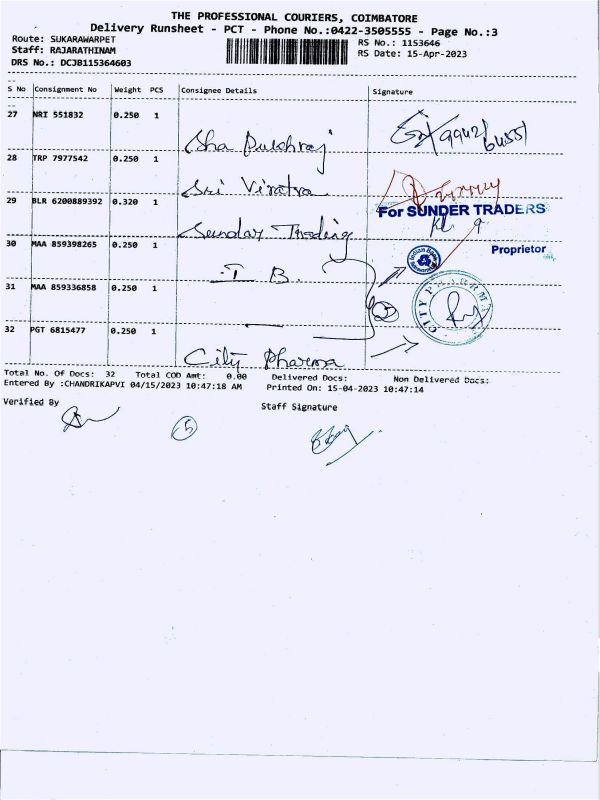 THE PROFESSIONAL COURIERS, COIMBATORE
Delivery Runsheet - PCT - Phone No.:0422-3505555 - Page No.:3
Route: SUKARAWARPET
RS No.: 1153646
Staff: RAJARATHINAM
RS Date: 15-Apr-2023
DRS No.: DCJB115364603
S No Consignment No Weight PCS Consignee Details Signature
27 NRI 551832 0.250 1
28 TRP 7977542 0.250 1
Sri
29 BLR 6200889392 0.320 1
For SUNDER TRADERS
Sundar Trading
30 MAA 859398265 0.250 1
Proprietor
I B.
31 MAA 859336858 0.250 1
32 PGT 6815477 0.250 1
City Pharma
Total No. Of Docs: 32 Total COD Amt: 0.00 Delivered Docs: Non Delivered Docs:
Entered By :CHANDRIKAPVI 04/15/2023 10:47:18 AM Printed On: 15-04-2023 10:47:14
Verified By
Staff Signature
5